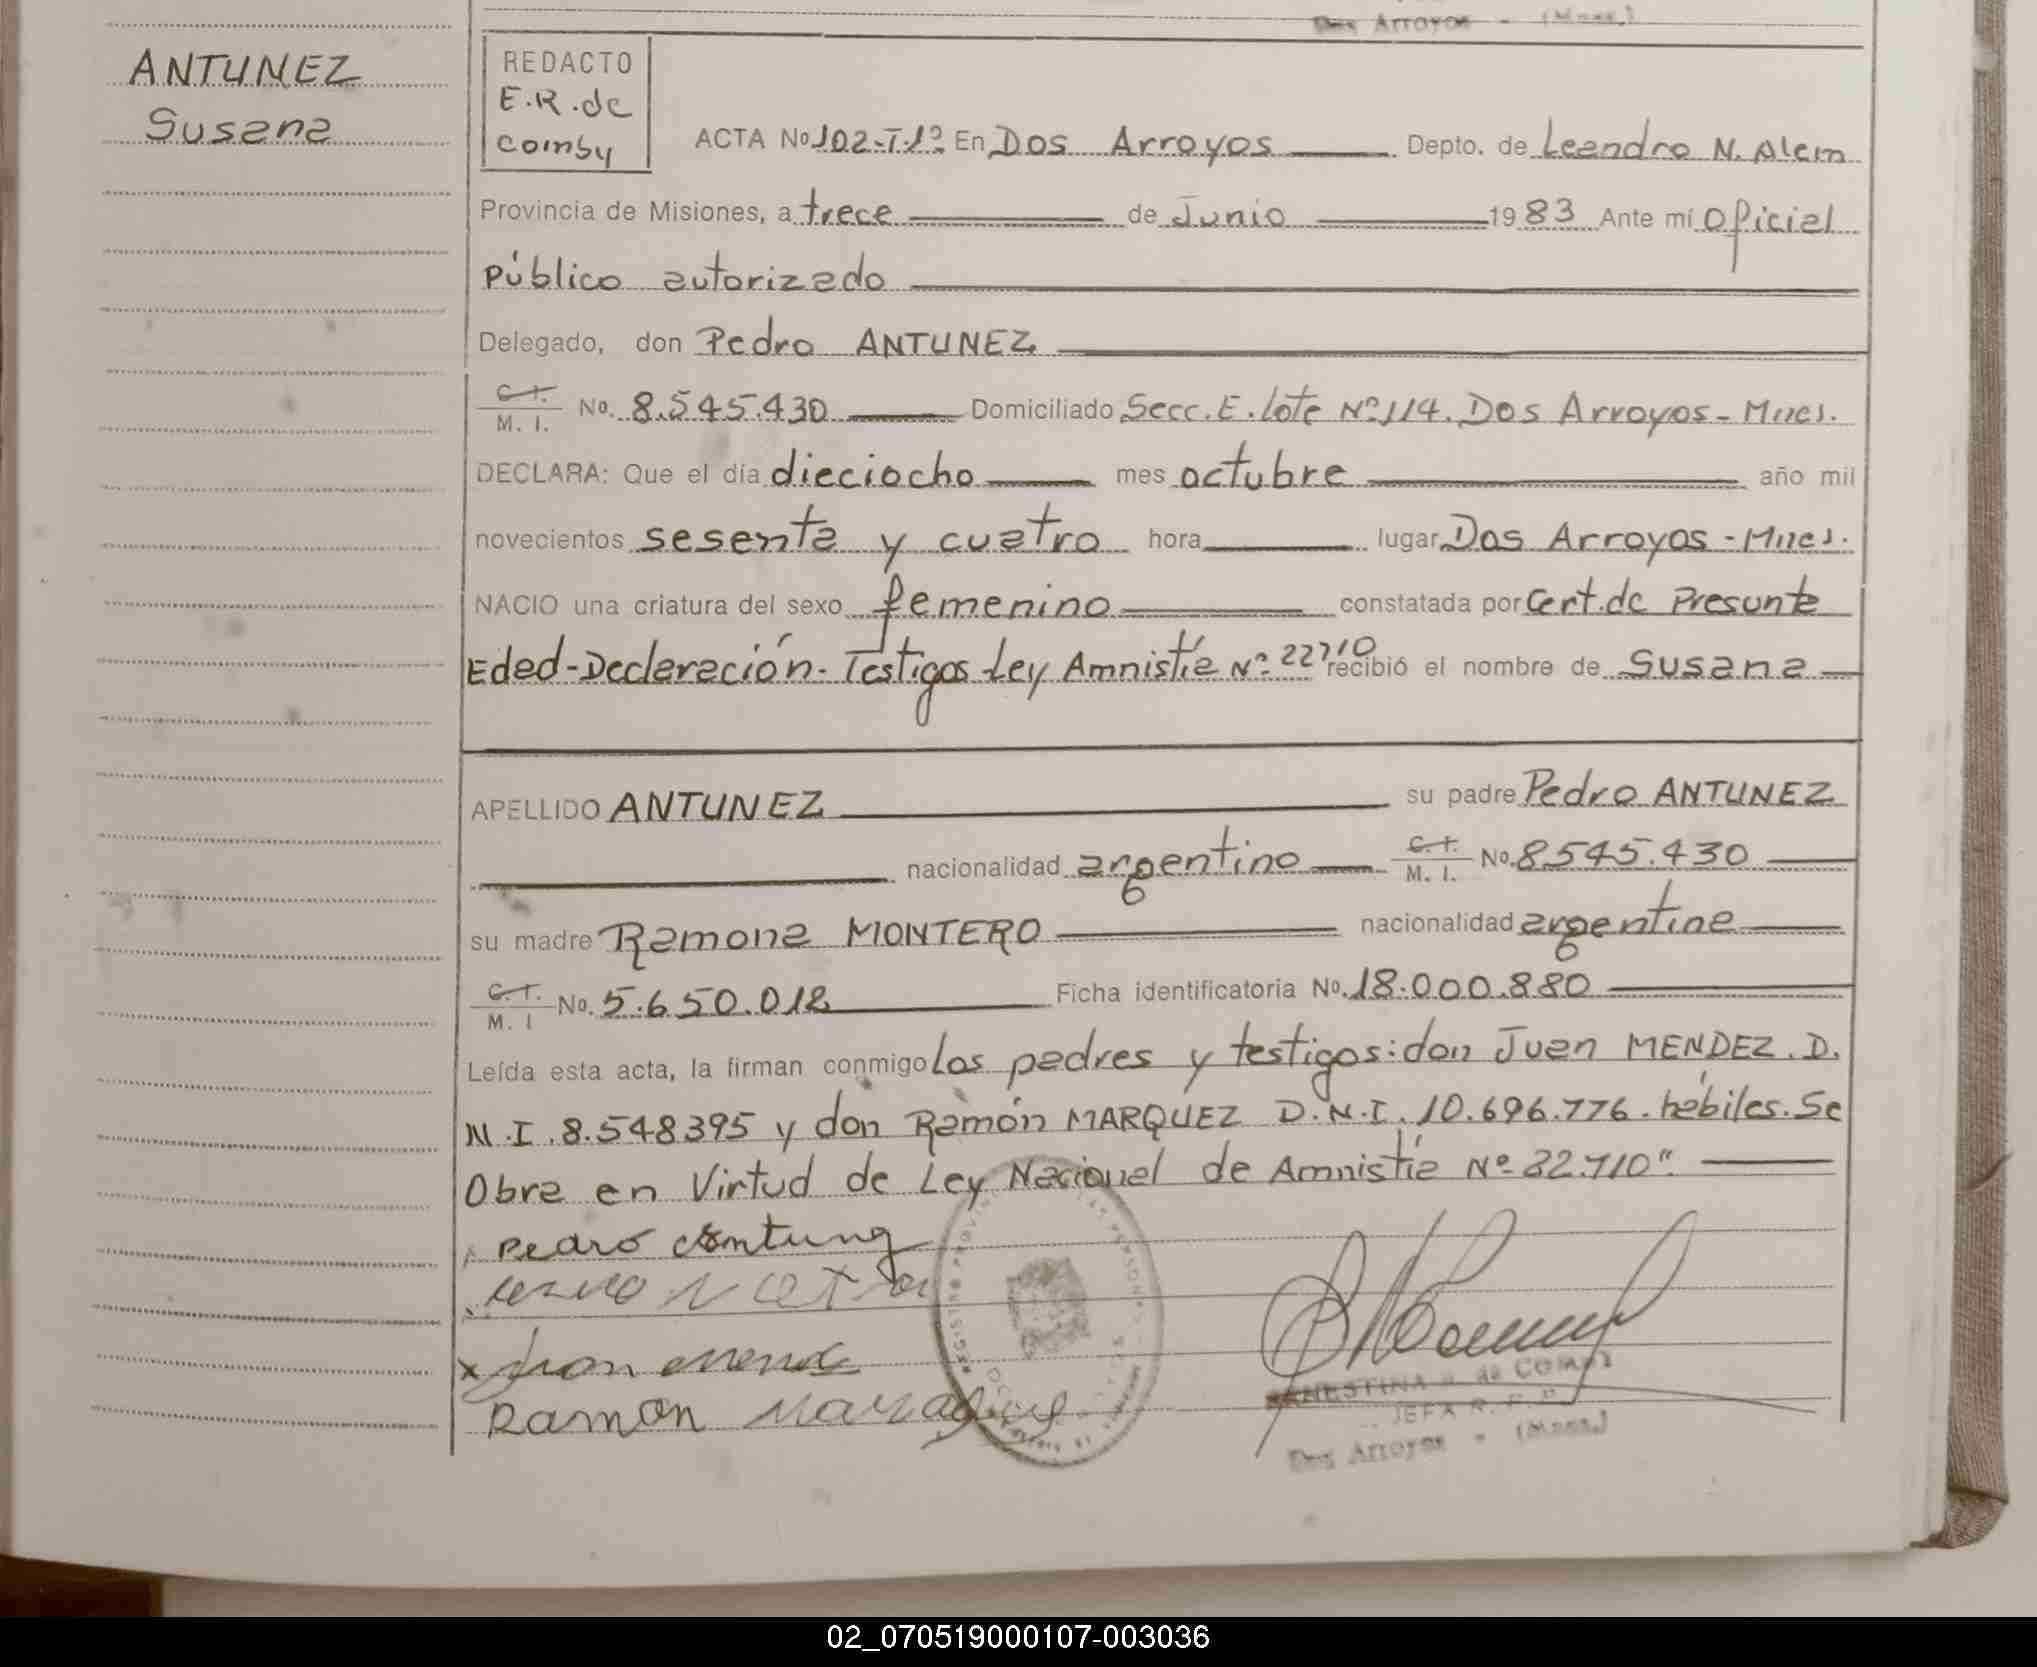 Dos Arroyos - (Mnes.)
ANTUNEZ
Susana
REDACTO
E.R. de
Comby
ACTA No 102-T.1º En Dos Arroyos Depto. de Leandro N. Alem
Provincia de Misiones, a trece de Junio 1983 Ante mí Oficial
Público autorizado
Delegado, don Pedro ANTUNEZ
C.I. M. I. No. 8.545.430 Domiciliado Secc. E. Lote Nº 114. Dos Arroyos - Mnes.
DECLARA: Que el día dieciocho mes octubre año mil
novecientos sesenta y cuatro hora lugar Dos Arroyos - Mnes.
NACIO una criatura del sexo femenino constatada por Cert. de Presunta
Edad - Declaración - Testigos Ley Amnistía Nº 22710 recibió el nombre de Susana
APELLIDO ANTUNEZ su padre Pedro ANTUNEZ
nacionalidad argentino C.I. M. I. No. 8.545.430
su madre Ramona MONTERO nacionalidad argentina
C.I. M. I No. 5.650.018 Ficha identificatoria No. 18.000.880
Leída esta acta, la firman conmigo los padres y testigos: don Juan MENDEZ. D.
N.I. 8.548395 y don Ramón MARQUEZ D.N.I. 10.696.776. hábiles. Se
Obra en Virtud de Ley Nacional de Amnistía Nº 22.710".
Pedro
Ramon
ERNESTINA R. de COMBY
JEFA R. P. P.
Dos Arroyos - (Mnes.)
02_070519000107-003036